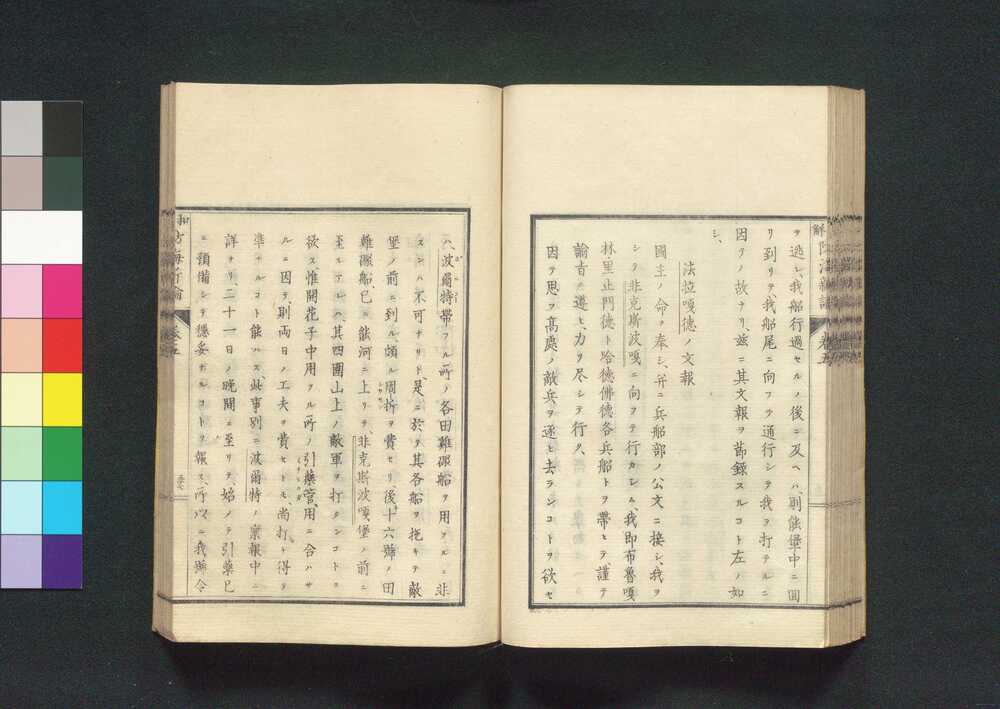 ヲ逃シ、我船行過セルノ後ニ及ヘハ、則能堡中ニ回
リ到リテ、我船尾ニ向フテ通行シテ我ヲ打テルニ
因テノ故ナリ、茲ニ其文報ヲ節録スルコト左ノ如
シ、
法拉嘎德ノ文報
國主ノ命ヲ奉シ、并ニ兵船部ノ公文ニ接シ、我ヲ
シテ非克斯波嘎ニ向ヲテ行カシム、我即布魯嘎
林里止門德ト哈德佛德各兵船トヲ帶ヒテ、謹テ
諭旨ニ遵ヒ、力ヲ尽シテ行ク、
因テ思フ高處ノ敵兵ヲ逐ヒ去ランコトヲ欲セ
ハ、波爾特帶フル所ノ各田雞礮船ヲ用フルニ非
スンハ不可ナリト、是ニ於テ其各船ヲ拖キテ敵
堡ノ前ニ到ル、頗ル周折ヲ費セリ、後十六號ノ田
雞礮船、已ニ能河ニ上リテ、非克斯波嘎堡ノ前ニ
至ルアレハ、其四圍山上ノ敵軍ヲ打タンコトヲ
欲ス、惟開花子中用ヲル所ノ引藥管、用ニ合ハサ
ルニ因テ、則両日ノ工夫ヲ費セトモ尚打ト得ヲ
準ナルコト能ハス、此事別ニ波爾特ノ稟報中ニ
詳ナリ、二十一日ノ晩間ニ至リテ、始メテ引藥已
ニ預備シテ穏妥ナルコトヲ報ス、所以ニ我號令